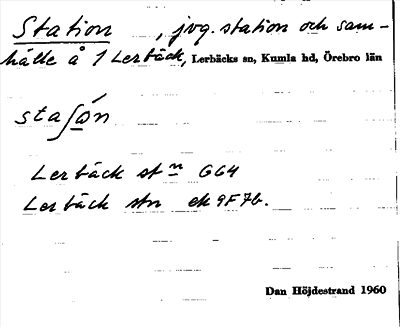 Station, jvg. station och sam-
hälle å 1 Lerbäck, Lerbäcks sn, Kumla hd, Örebro län
staʃó̲n
Lerbäck stn GG4
Lerbäck stn ek 9F7b.
Dan Höjdestrand 1960